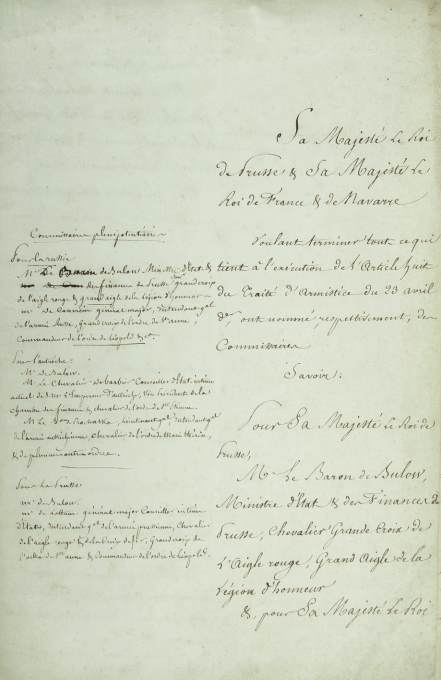 Sa Majesté Le Roi
de Prusse & Sa Majesté Le
Roi de France & de Navarre
Voulant terminer tout ce qui
tient à l'exécution de l'Article huit
du Traité d'Armistice du 23 avril
dr, ont nommé, respectivement, des
Commissaires
Savoir:
Pour Sa Majesté Le Roi de
Prusse,
Mr. Le Baron de Bulow,
Ministre d'Etat & des Finances de
Prusse, Chevalier Grande Croix de
L'Aigle rouge, Grand Aigle de la
Légion d'honneur
&, pour Sa Majesté Le Roi
Commissaires plenipotentiaires
Pour la russie
Mr. de Bulow Ministre d'Etat &
des finances de Prusse grand croix
de l'aigle rouge & grand aigle de la légion d'honneur
mr. de général major, Intendant gal
de l'armée Russe, Grand croix de l'ordre de Ste anne,
Commandeur de l'ordre de léopold &ca.
Pour l'autriche:
Mr. de Bulow.
M. Le Chevalier de barbier Conseiller d'Etat intime
actuel de S. M. L'Empereur d'autriche, Vice président de la
chambre des finances & chevalier de l'ordre de St Etienne.
M. Le Bon de Prochaska, lieutenant gal, Intendant gal
de l'armée autrichienne, chevalier de l'ordre de Marie Thérèse,
&
Pour la Prusse
mr. de Bulow.
mr. de général major Conseiller intime
d'Etat, Intendant gal de l'armée prussienne, Chevalier
de l'aigle rouge & de la croix de fer, Grand croix de
l'ordre de Ste anne & Commandeur de l'ordre de léopold.